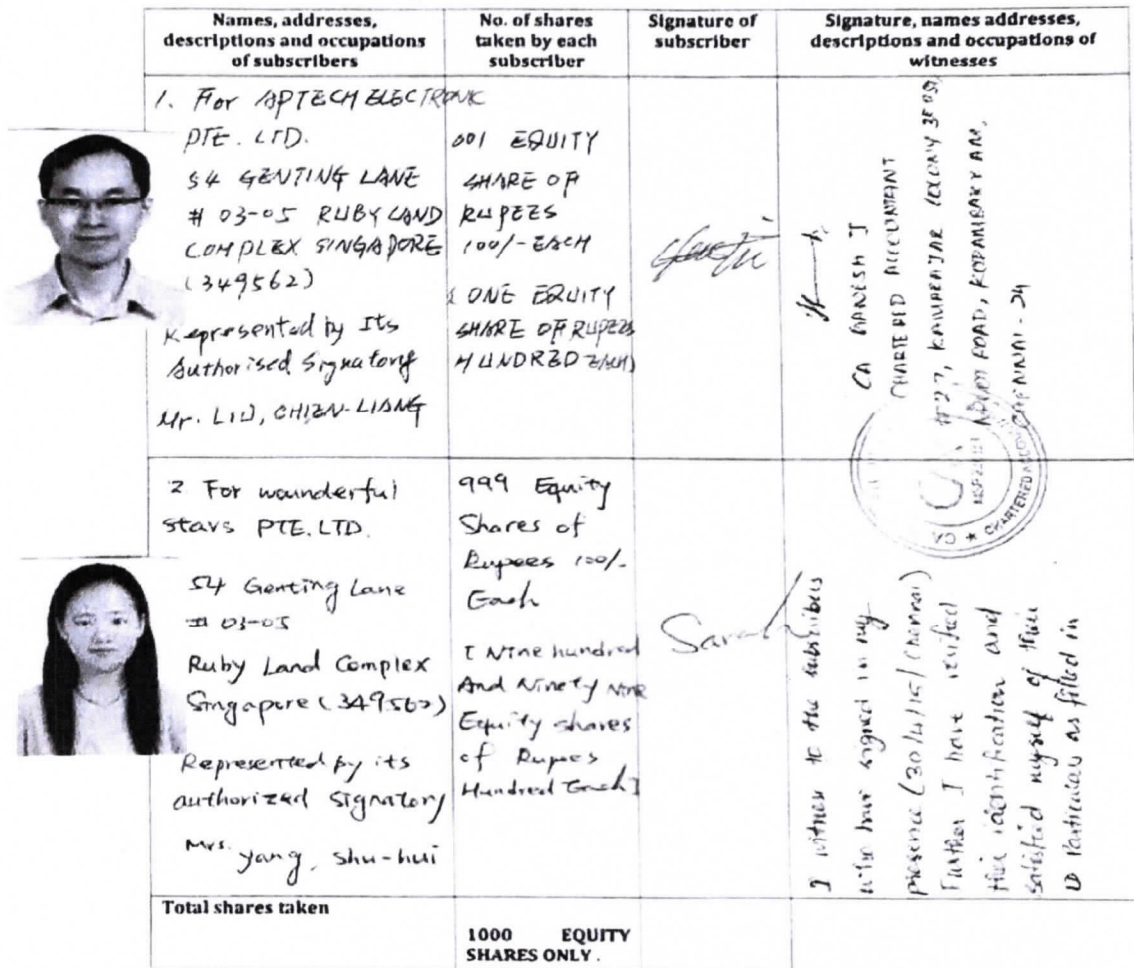 Names, addresses,
descriptions and occupations
of subscribers
No. of shares
taken by each
subscriber
Signature of
subscriber
Signature, names addresses,
descriptions and occupations of
witnesses
1. For APTECH ELECTRONIC
PTE. LTD.
54 GENTING LANE
# 03-05 RUBY LAND
COMPLEX SINGAPORE
(349562)
Represented by Its
Authorised Signatory
Mr. LIU, CHIEN-LIANG
001 EQUITY
SHARE OF
RUPEES
100/- EACH
( ONE EQUITY
SHARE OF RUPEES
HUNDRED EACH)
CA GANESH J
CHARTERED ACCOUNTANT
#27, KAMARAJAR COLONY
ROAD, KODAMBAKKAM,
CHENNAI - 24
CHARTERED ACCOU
2 For wounderful
stars PTE. LTD.
54 Genting Lane
# 03-05
Ruby Land Complex
Singapore (349562)
Represented by its
authorized signatory
Mrs. yang, shu-hui
999 Equity
Shares of
Rupees 100/-
Each
[ Nine hundred
And Ninety Nine
Equity shares
of Rupees
Hundred Each ]
Sarah
I witness to the subscribers
who have signed in my
presence (30/4/15/Chennai)
Further I have verified
their identification and
satisfied myself of their
ID Particulars as filled in
Total shares taken
1000 EQUITY
SHARES ONLY .